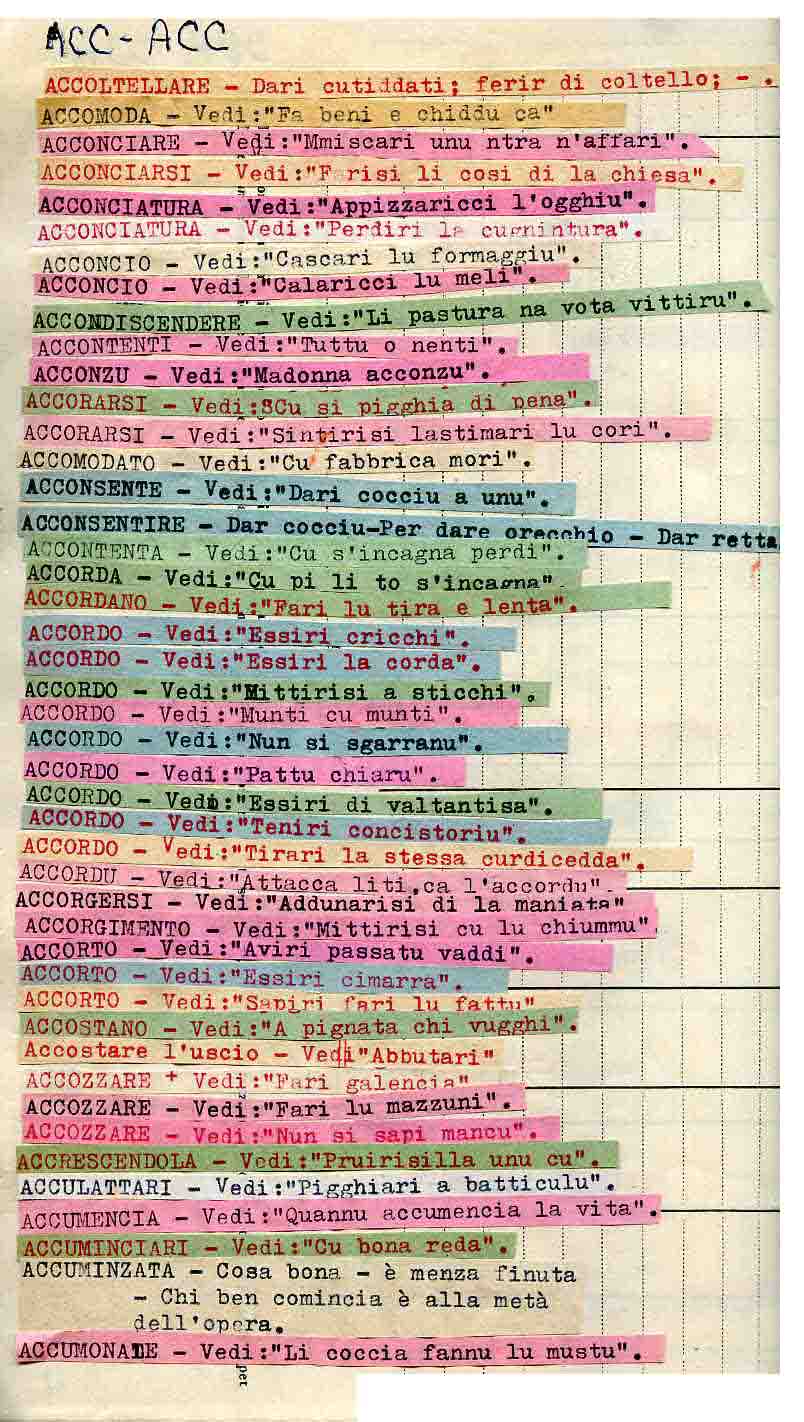 ACC - ACC
ACCOLTELLARE - Dari cutiddati; ferir di coltello; - .
ACCOMODA - Vedi:"Fa beni e chiddu ca"
ACCONCIARE - Vedi:"Mmiscari unu ntra n'affari".
ACCONCIARSI - Vedi:"F risi li cosi di la chiesa".
ACCONCIATURA - Vedi:"Appizzaricci l'ogghiu".
ACCONCIATURA - Vedi:"Perdiri la cugnintura".
ACCONCIO - Vedi:"Cascari lu formaggiu".
ACCONCIO - Vedi:"Calaricci lu meli".
ACCONDISCENDERE - Vedi:"Li pastura na vota vittiru".
ACCONTENTI - Vedi:"Tuttu o nenti".
ACCONZU - Vedi:"Madonna acconzu".
ACCORARSI - Vedi:SCu si pigghia di pena".
ACCORARSI - Vedi:"Sintirisi lastimari lu cori".
ACCOMODATO - Vedi:"Cu fabbrica mori".
ACCONSENTE - Vedi:"Dari cocciu a unu".
ACCONSENTIRE - Dar cocciu-Per dare orecchio - Dar retta
ACCONTENTA - Vedi:"Cu s'incagna perdi".
ACCORDA - Vedi:"Cu pi li to s'incagna"
ACCORDANO - Vedi:"Fari lu tira e lenta".
ACCORDO - Vedi:"Essiri cricchi".
ACCORDO - Vedi:"Essiri la corda".
ACCORDO - Vedi:"Mittirisi a sticchi".
ACCORDO - Vedi:"Munti cu munti".
ACCORDO - Vedi:"Nun si sgarranu".
ACCORDO - Vedi:"Pattu chiaru".
ACCORDO - Vedi:"Essiri di valtantisa".
ACCORDO - Vedi:"Teniri concistoriu".
ACCORDO - Vedi:"Tirari la stessa curdicedda".
ACCORDU - Vedi:"Attacca liti,ca l'accordu".
ACCORGERSI - Vedi:"Addunarisi di la maniata"
ACCORGIMENTO - Vedi:"Mittirisi cu lu chiummu".
ACCORTO - Vedi:"Aviri passatu vaddi".
ACCORTO - Vedi:"Essiri cimarra".
ACCORTO - Vedi:"Sapiri fari lu fattu"
ACCOSTANO - Vedi:"A pignata chi vugghi".
Accostare l'uscio - Vedi"Abbutari"
ACCOZZARE + Vedi:"Fari galencia"
ACCOZZARE - Vedi:"Fari lu mazzuni".
ACCOZZARE - Vedi:"Nun si sapi mancu".
ACCRESCENDOLA - Vedi:"Pruirisilla unu cu".
ACCULATTARI - Vedi:"Pigghiari a batticulu".
ACCUMENCIA - Vedi:"Quannu accumencia la vita".
ACCUMINCIARI - Vedi:"Cu bona reda".
ACCUMINZATA - Cosa bona - è menza finuta
- Chi ben comincia è alla metà
dell'opera.
ACCUMONALE - Vedi:"Li coccia fannu lu mustu".
per